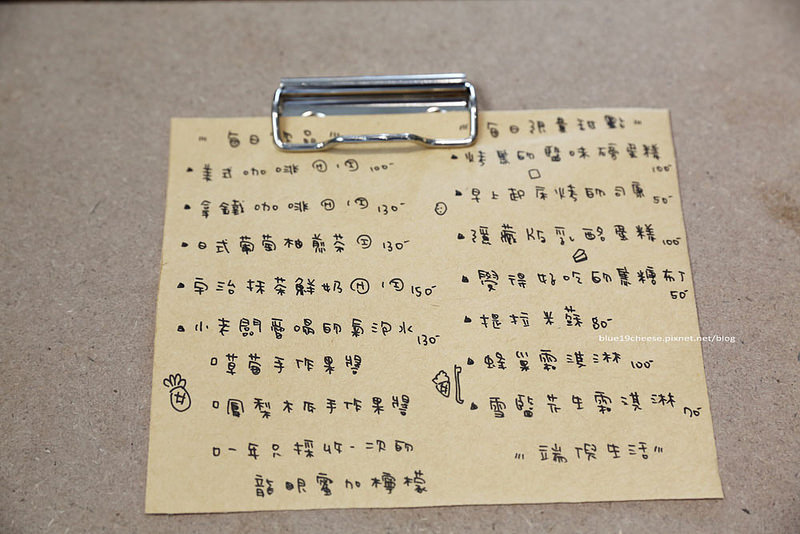 每日 品
▲ 美式咖啡 Ⓗ Ⓘ 100-
▲ 拿鐵咖啡 Ⓗ Ⓘ 130-
▲ 日式葡萄柚煎茶 Ⓘ 130-
▲ 宇治抹茶鮮奶 Ⓗ Ⓘ 150-
▲ 小老闆愛喝的氣泡水 130-
□ 草莓手作果醬
□ 鳳梨木瓜手作果醬
□ 一年只採收一次的
龍眼蜜加檸檬
每日限量甜點
▲ 烤 的鹽味磅蛋糕 100-
▲ 早上起床烤的司康 50-
▲ 隱藏 乳酪蛋糕 100-
▲ 覺得好吃的焦糖布丁 50-
▲ 提拉米蘇 80-
▲ 蜂巢霜淇淋 100-
▲ 雪鹽花生霜淇淋 70-
端 生活
blue19cheese.pixnet.net/blog